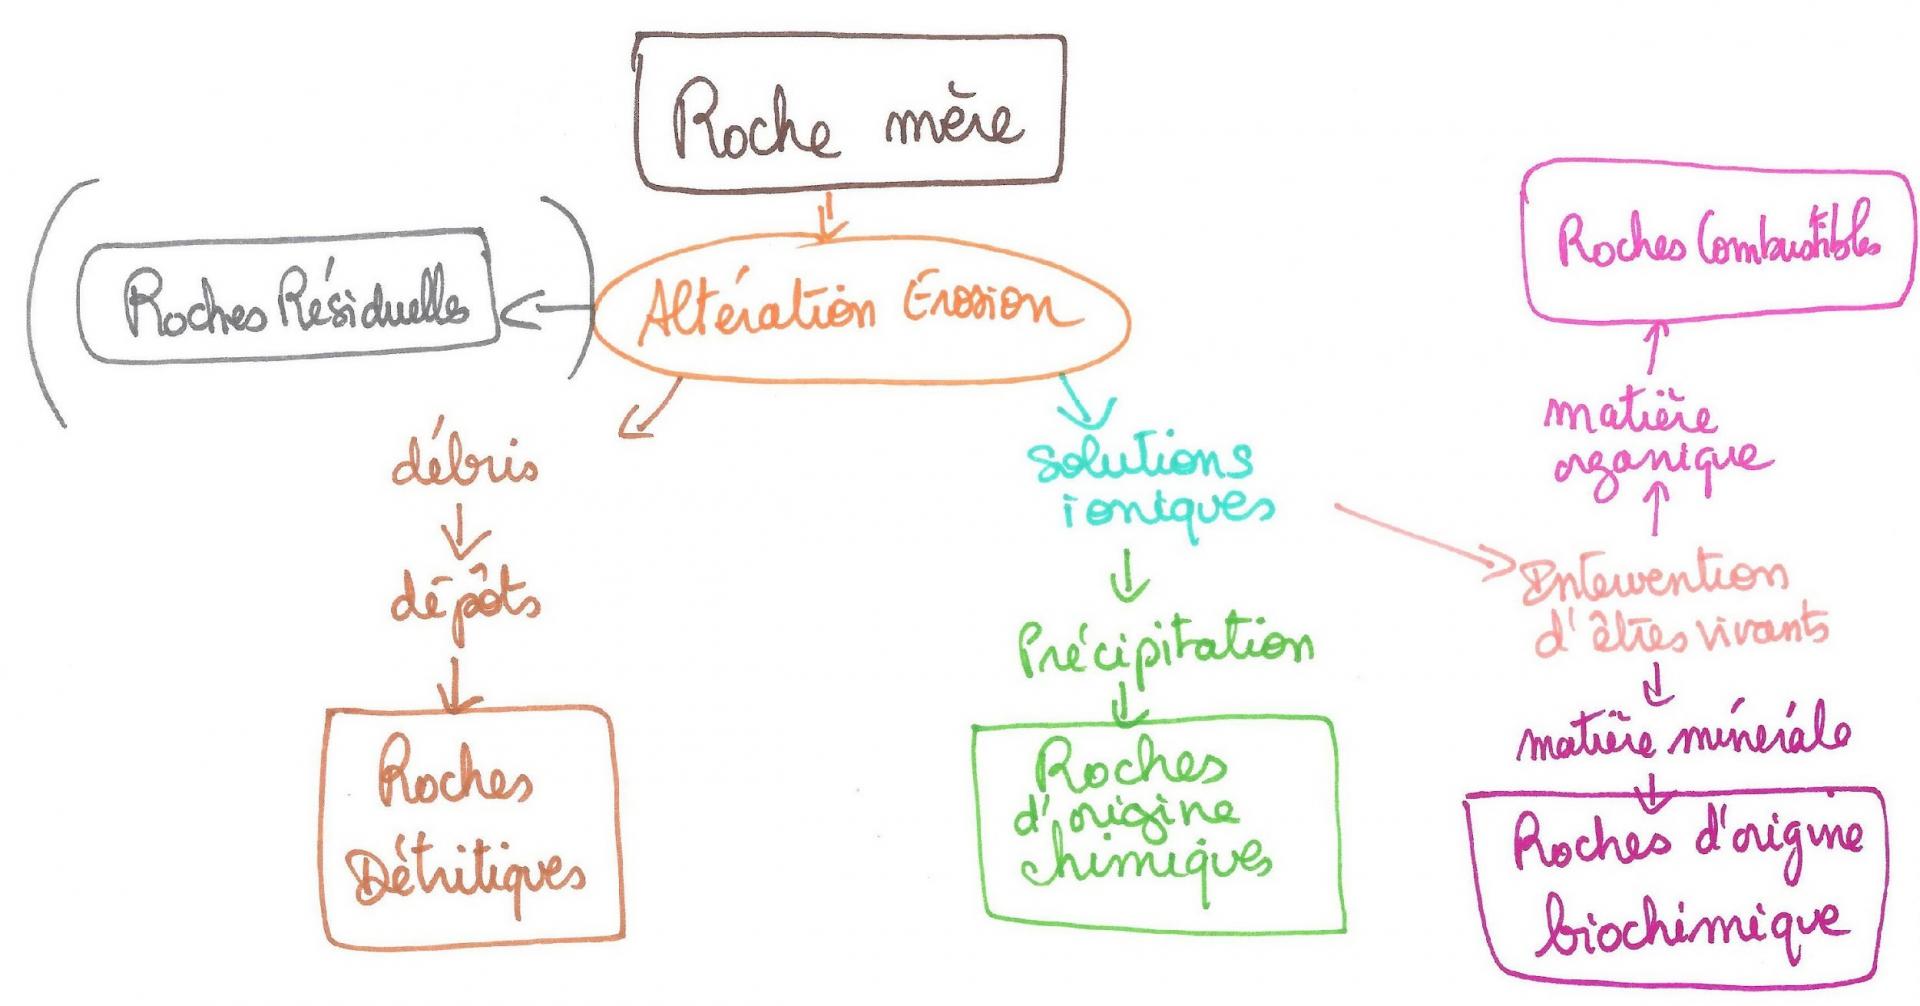 Roche mère
Roches Résiduelles
Altération Erosion
Roches Combustibles
débris
Solutions
ioniques
matière
organique
dépôts
Intervention
d'êtres vivants
Précipitation
matière minérale
Roches
Détritiques
Roches
d'origine
chimiques
Roches d'origine
biochimique